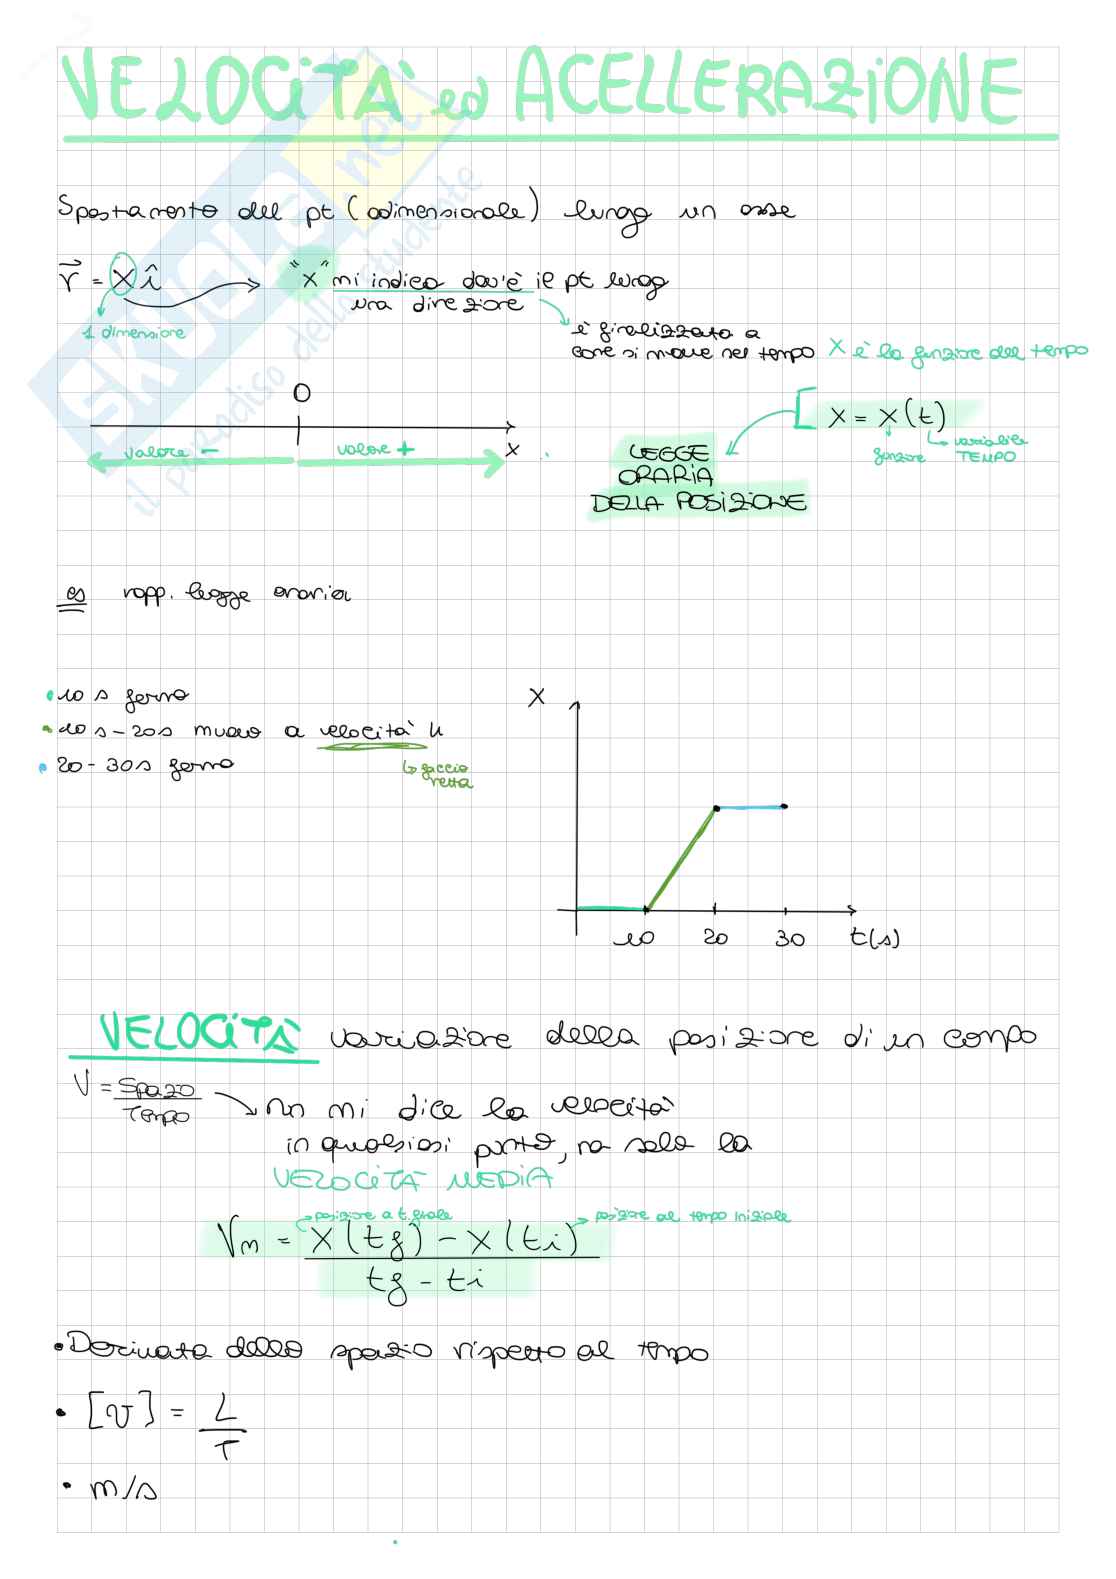 VELOCITÀ ed ACELLERAZIONE
Spostamento del pt (adimensionale) lungo un asse
r⃗ = x î
"x" mi indica dov'è il pt lungo
una direzione
1 dimensione
è finalizzato a
come si muove nel tempo
X è la funzione del tempo
O
X = X(t)
valore -
valore +
x
funzione
variabile
TEMPO
LEGGE
ORARIA
DELLA POSIZIONE
es rapp. legge oraria
• 10 s fermo
• 10 s - 20s muovo a velocità u
• 20 - 30s fermo
↳ faccio
retta
X
10 20 30 t(s)
VELOCITÀ variazione della posizione di un corpo
V = Spazio
Tempo
nn mi dice la velocità
in qualsiasi punto, ma solo la
VELOCITÀ MEDIA
posizione a t. finale
posizione al tempo iniziale
Vm = X(tf) - X(ti)
tf - ti
• Derivata dello spazio rispetto al tempo
• [v] = L
T
• m/s
SKUOLA.net
il paradiso dello studente